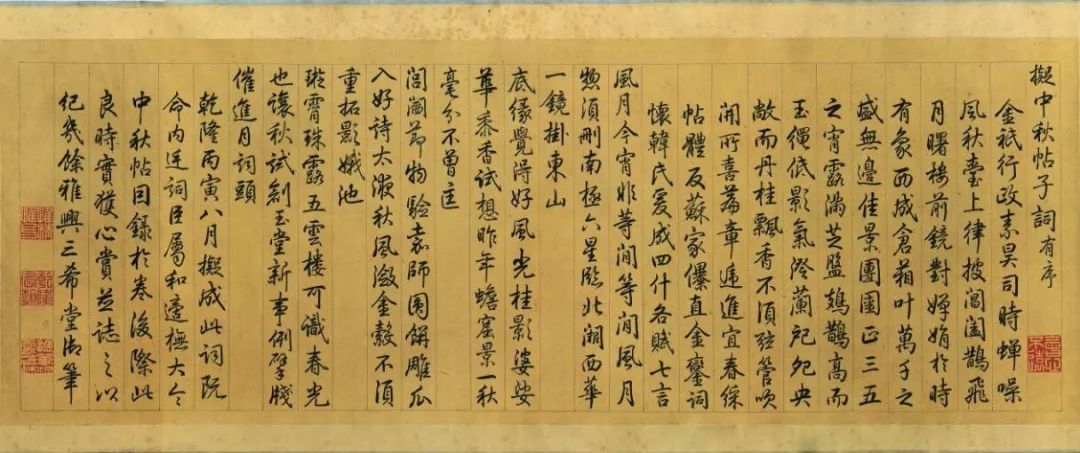 擬中秋帖子詞有序
金祇行政素昊司時蟬噪
風秋臺上律披閶闔鵲飛
月曙樓前鏡對嬋娟於時
有象西成倉箱叶萬子之
盛無邊佳景團圞正三五
之宵露滿芝盤鳷鵲高而
玉繩低影氣澄蘭戺央
敞而丹桂飄香不須弦管吹
開所喜篇章遞進宜春綵
帖體反蘇家儤直金鑾詞
懷韓氏爰成四什各賦七言
風月今宵非等閒等閒風月
想須刪南極六星臨北闕西華
一鏡掛東山
底緣覺得好風光桂影婆娑
華黍香試想昨年蟾窟景一秋
毫分不曾匡
閶闔節物驗嘉師圍餅雕瓜
入好詩太液秋風激金縠不須
重拓影娥池
璇霄珠露五雲樓可識春光
也讓秋試創玉堂新事例擘牋
催進月詞頭
乾隆丙寅八月擬成此詞既
命內廷詞臣屬和邊撫大令
中秋帖因錄於卷後際此
良時實獲心賞並誌之以
紀幾餘雅興三希堂御筆